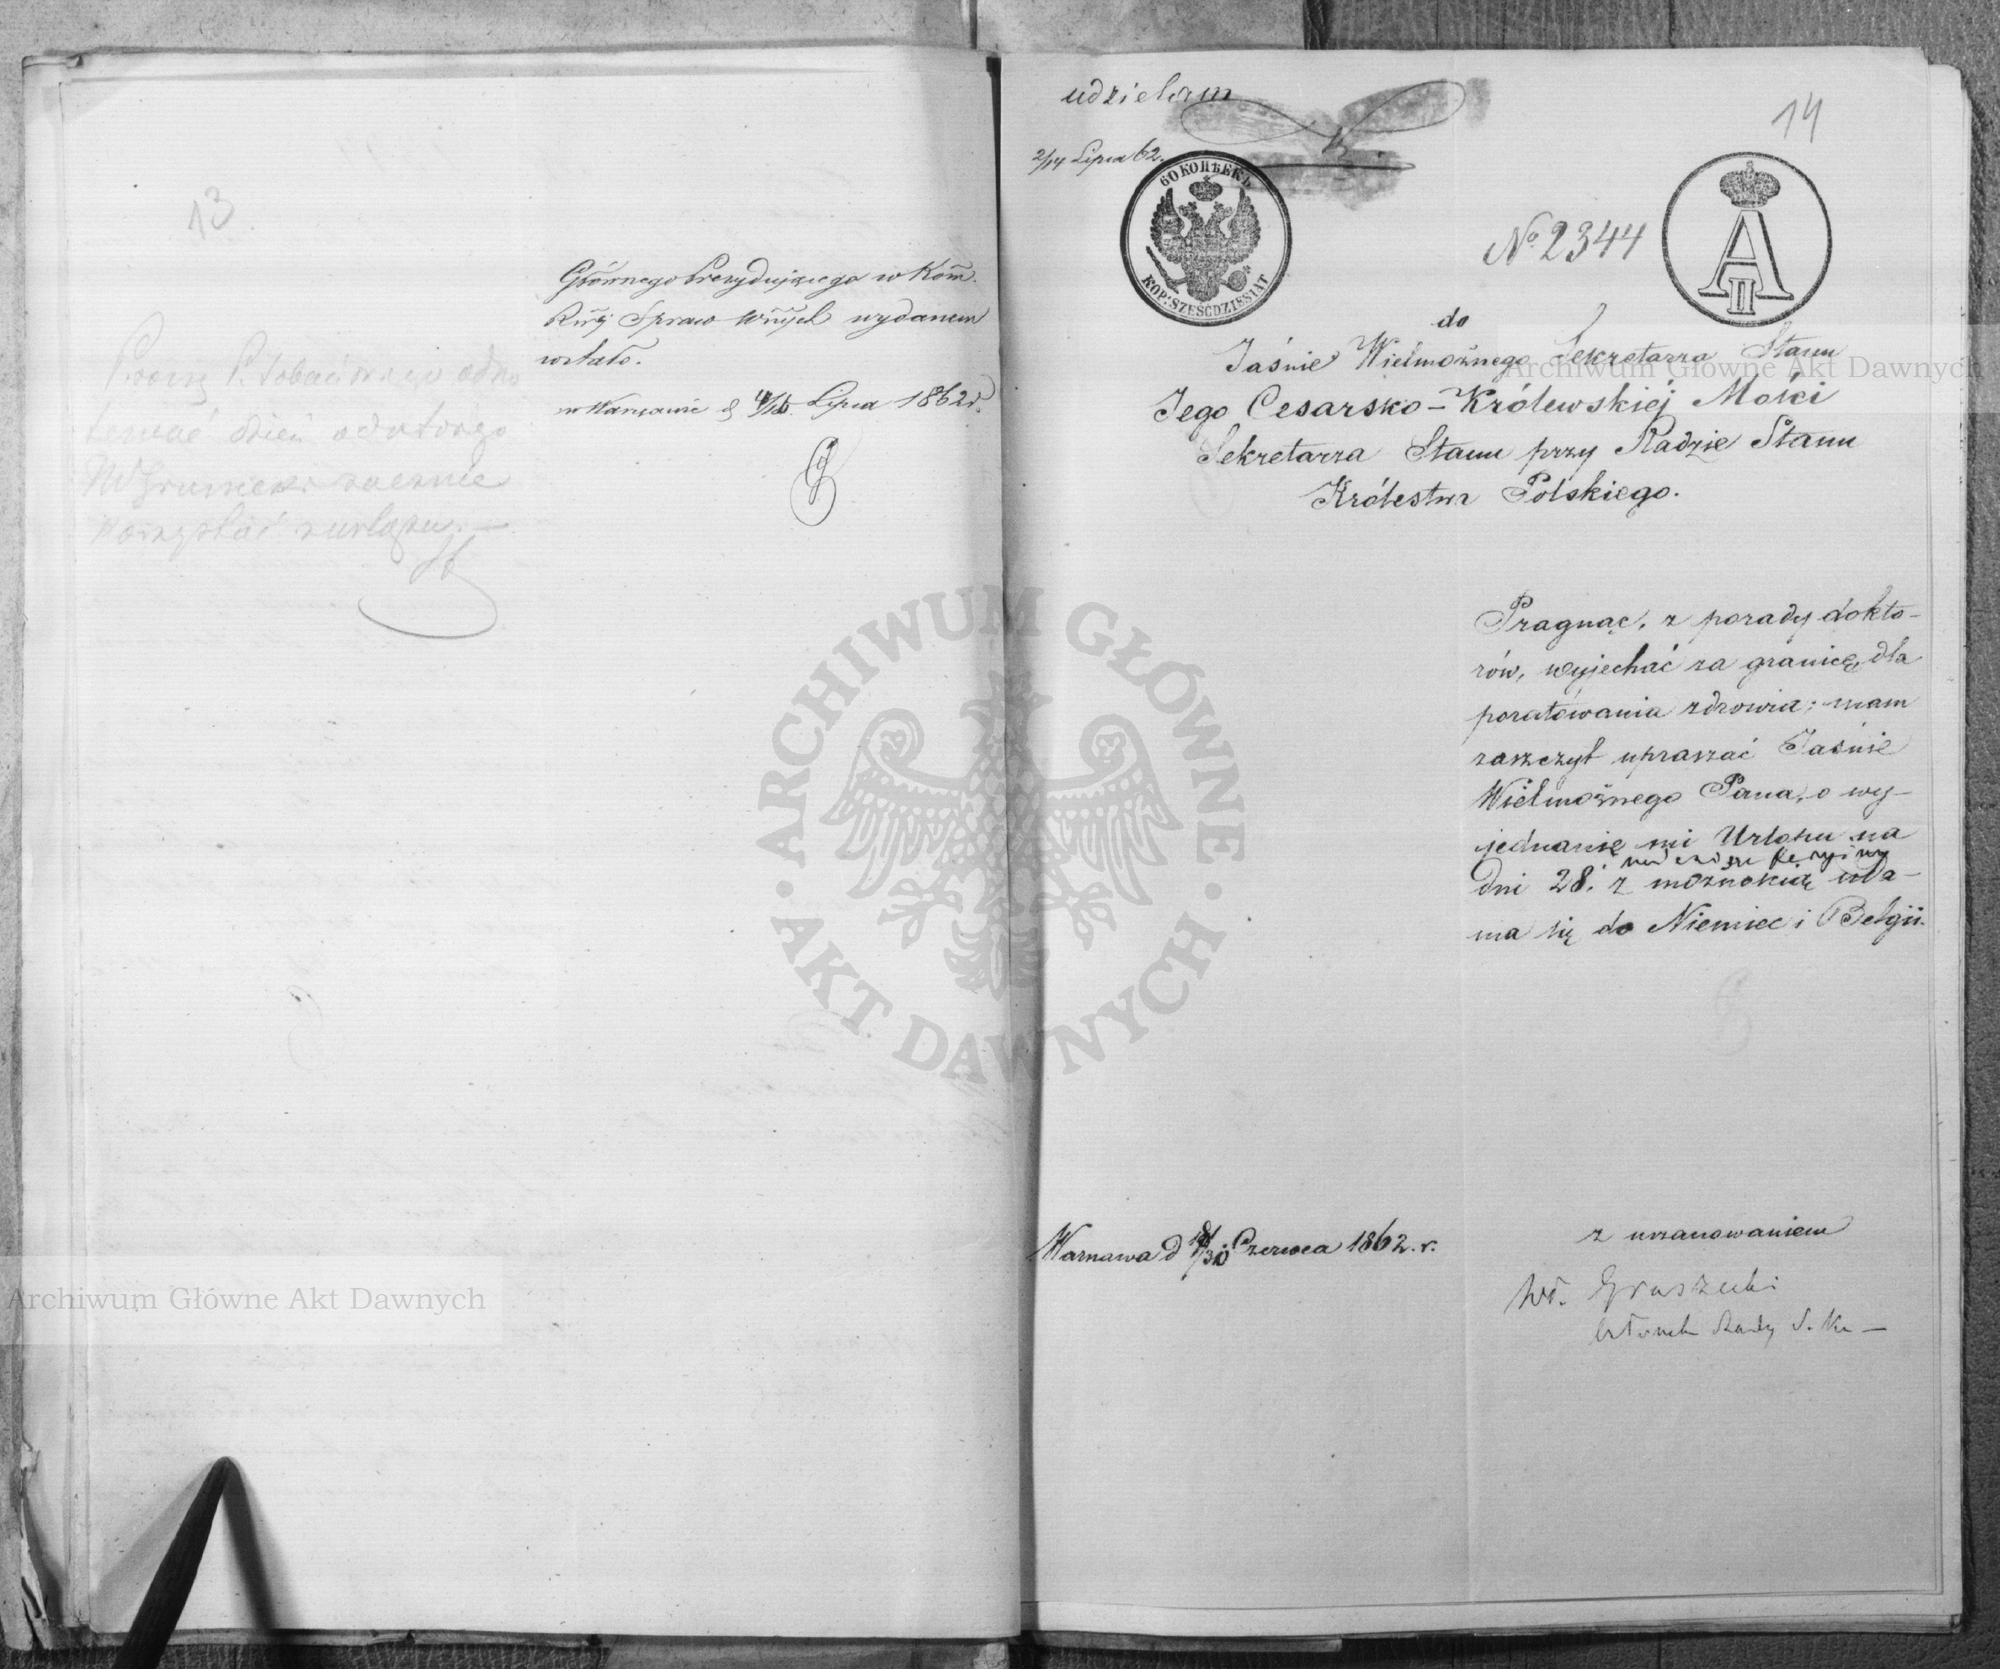 13
Proszę P.
dzień od którego
W Gruszecki zacznie
korzystać z urlopu. —
Głównego Prezydującego w Kom.
Rząj Spraw Wnych wydanem
została.
w Warszawie d 4/16 Lipca 1862 r.
udzielam
2/14 Lipca 62.
14
60 КОПѢЕКЪ
KOP: SZEŚĆDZIESIĄT
№ 2344
A II
do
Jaśnie Wielmożnego Sekretarza Stanu
Jego Cesarsko-Królewskiéj Mości
Sekretarza Stanu przy Radzie Stanu
Królestwa Polskiego.
Pragnąc, z porady dokto-
rów, wyjechać za granicę, dla
poratowania zdrowia; mam
zaszczyt upraszać Jaśnie
Wielmożnego Pana, o wy-
jednanie mi Urlopu na
Dni 28. z możnością uda-
nia się do Niemiec i Belgii.
Warszawa d 18/30 Czerwca 1862. r.
z uszanowaniem
Wł. Gruszecki
Członek Rady S. Kr —
ARCHIWUM GŁÓWNE AKT DAWNYCH
Archiwum Główne Akt Dawnych
Archiwum Główne Akt Dawnych